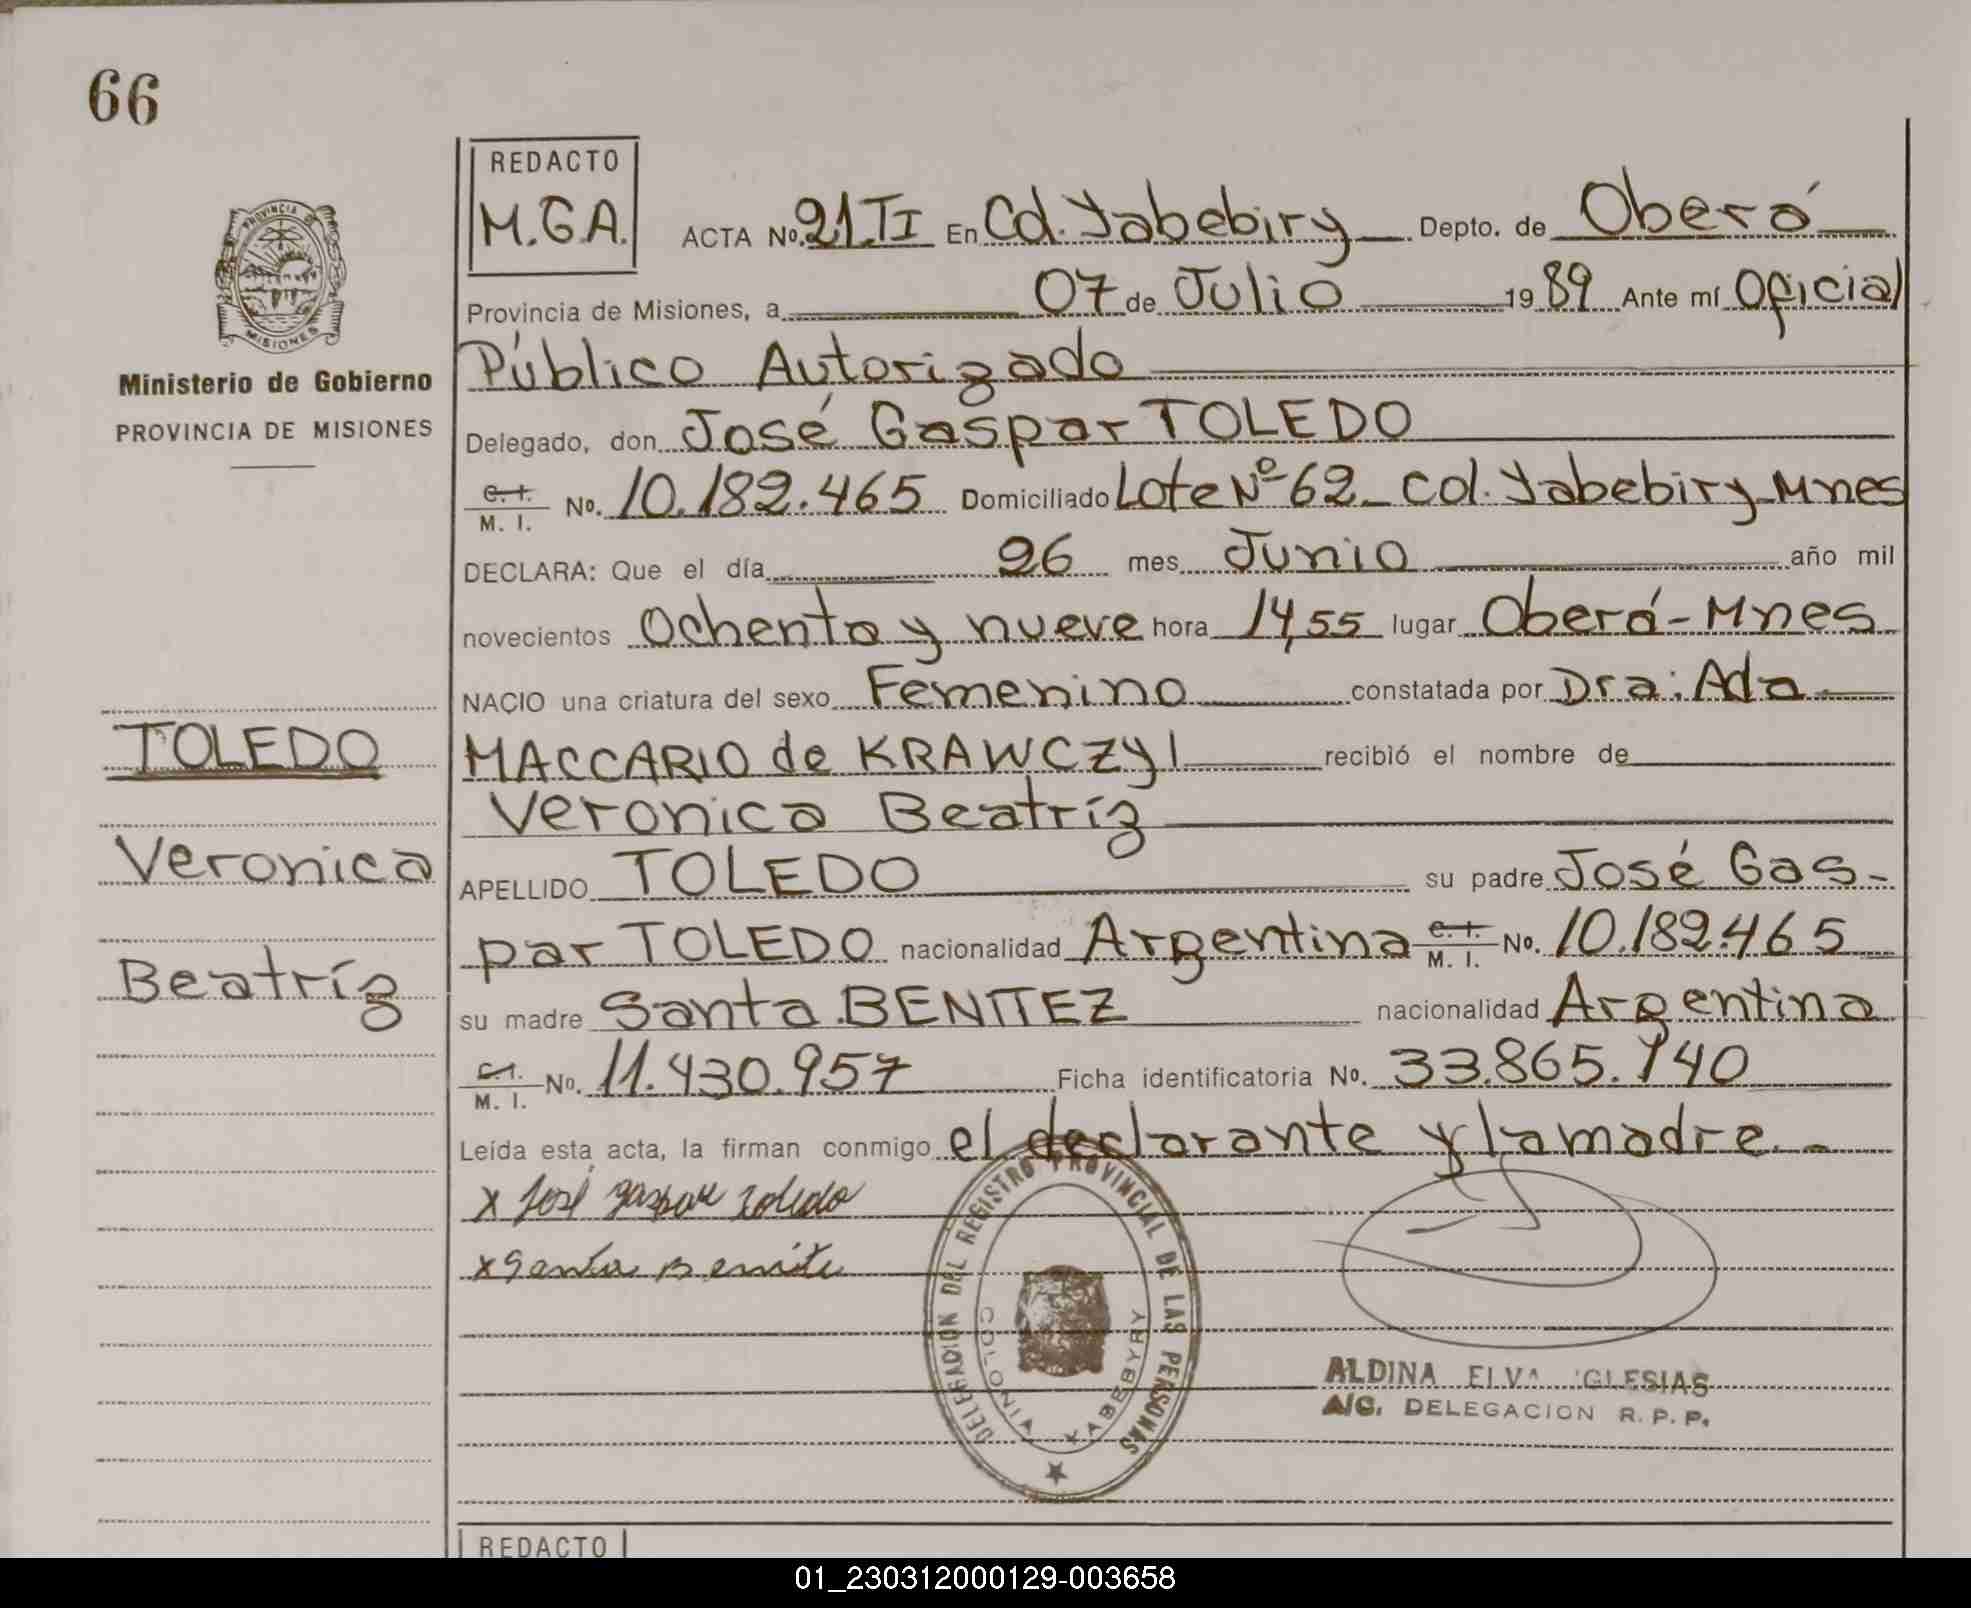 66
PROVINCIA DE
MISIONES
Ministerio de Gobierno
PROVINCIA DE MISIONES
TOLEDO
Veronica
Beatríz
REDACTO
M.G.A.
ACTA No. 21.TI En Cd. Yabebiry Depto. de Oberá
Provincia de Misiones, a 07 de Julio 1989 Ante mí Oficial
Público Autorizado
Delegado, don José Gaspar TOLEDO
C. I. M. I. No. 10.182.465 Domiciliado Lote Nº 62_ Col. Yabebiry_Mnes
DECLARA: Que el día 26 mes Junio año mil
novecientos Ochenta y nueve hora 14,55 lugar Oberá-Mnes
NACIO una criatura del sexo Femenino constatada por Dra. Ada
MACCARIO de KRAWCZYI recibió el nombre de
Veronica Beatríz
APELLIDO TOLEDO su padre José Gas-
par TOLEDO nacionalidad Argentina C. I. M. I. No. 10.182.465
su madre Santa BENITEZ nacionalidad Argentina
C. I. M. I. No. 11.430.957 Ficha identificatoria No. 33.865.140
Leída esta acta, la firman conmigo el declarante y la madre.-
x José gaspar toledo
x Santa Benite
DELEGACION DEL REGISTRO PROVINCIAL DE LAS PERSONAS
COLONIA YABEBYRY
ALDINA ELVA IGLESIAS
A/C. DELEGACION R. P. P.
REDACTO
01_230312000129-003658